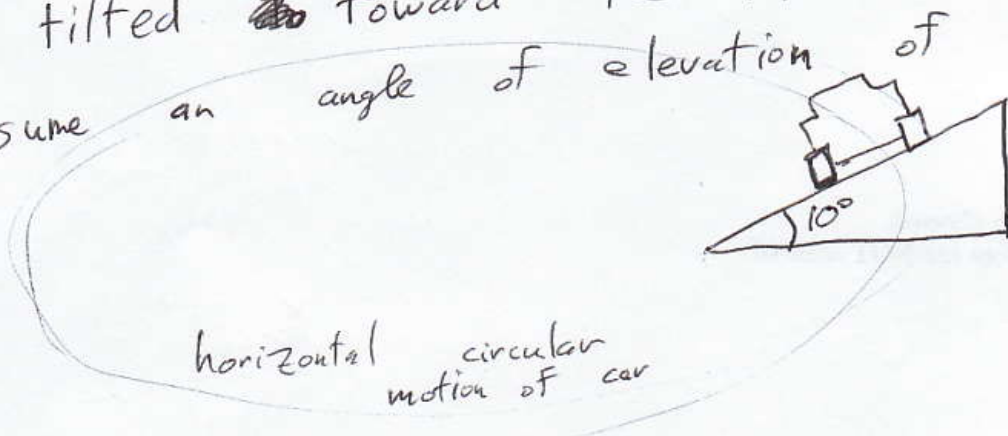 tilted Toward
sume an angle of elevation of
10°
horizontal circular
motion of car